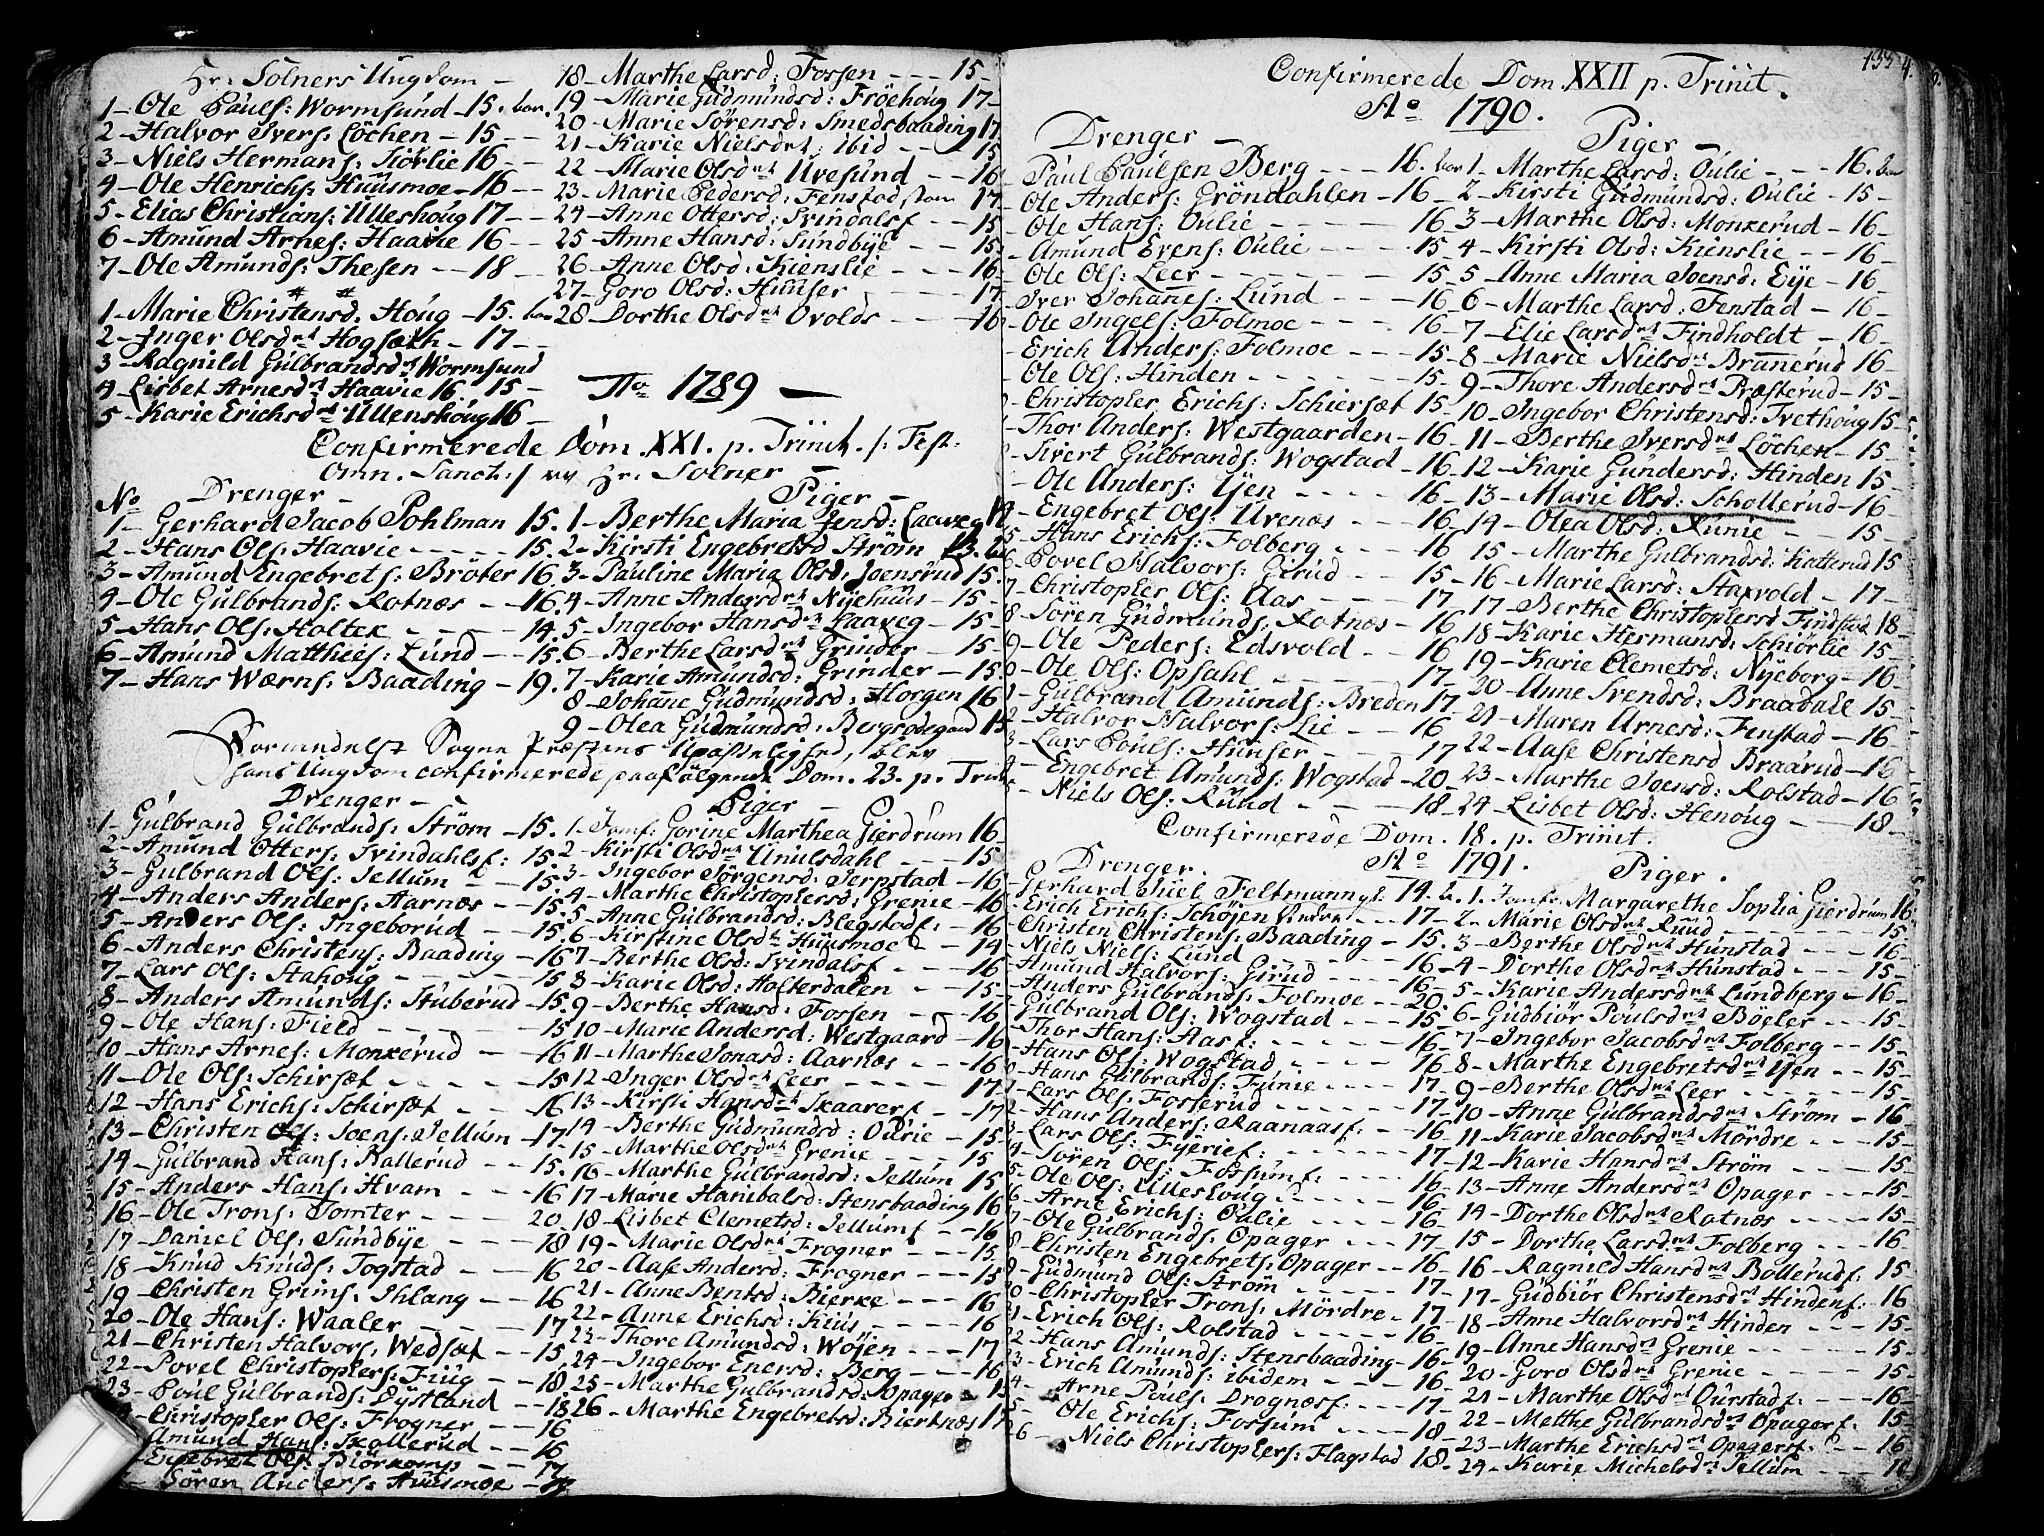 Hr: Solners Ungdom –
1 – Ole Pauls: Wormsund – 15.
2 – Halvor Ivers: Löchen – 15 –
3 – Niels Hermans: Siörlie 16 –
4 – Ole Henrichs: Huusmoe – 16 –
5 – Elias Christians: Ulleshoug 17 –
6 – Amund Arnes: Haavie 16 –
7 – Ole Amunds: Thesen – 18 –
1 – Marie Christensd. Houg – 15.
2 – Inger Olsdrt Hogsæth – 17 –
3 – Ragnild Gulbrandsdrt Wormsund 15 –
4 – Lisbet Arnesdrt Haavie 16.
5 – Karie Erichsdrt Ullenshoug 16 –
18 – Marthe Larsd: Fossen – – – 15 –
19 – Marie Gudmundsd: Fröehoug 17 –
20 – Marie Sörensd: Smedsbaading 17
21 – Karie Nielsdrt: ibid – – 15
22 – Marie Olsdrt Uvesund – 16
23 – Marie Pedersd: Fenstad 17
24 – Anne Ottersd: Svindalsf – – 15
25 – Anne Hansd: Sundbye – – 15
26 – Anne Olsd: Kienslie – – – 16
27 – Goro Olsd: Hunser – – – 17
28 – Dorthe Olsdrt Ovolds – – – 16
Ao 1789 –
Confirmerede Dom. XXI. p. Trinit. /: Fest.
Omn. Sanct :/ Hr: Solner –
No Drenger –
1 – Gerhard Jacob Pohlman 15.
2 – Hans Ols: Haavie – – – 15.
3 – Amund Engebrets: Bröter 16.
4 – Ole Gulbrands: Rotnæs – – 16.
5 – Hans Ols: Holter – – – 14.
6 – Amund Matthies: Lund – – 15.
7 – Hans Wærns: Baading – 19.
Piger –
1 – Berthe Maria Jensd: Laaveg
2 – Kirsti Engebretsd Ström 15.
3 – Pauline Maria Olsd: Joensrud 15.
4 – Anne Andersdrt Nyehuus – 15 –
5 – Ingebor Hansdrt Laaveg – 15 –
6 – Berthe Larsdrt Grinder – 15 –
7 – Karie Amundsd: Grinder – 15
8 – Johane Gudmundsd: Horgen 16
9 – Olea Gudmundsd: Bergsødegaard 15
Formedelst Sogne Præstens Upasselighed, blev
hans Ungdom confirmerede paafölgende Dom. 23. p. Trin
Drenger –
1 – Gulbrand Gulbrands: Ström – 15.
2 – Amund Otters: Svindahlsf: 15.
3 – Gulbrand Ols: Jellum – – 15.
4 – Anders Anders: Aarnæs – – 15.
5 – Anders Ols: Ingeborud – – 15.
6 – Anders Christens: Baading – 16
7 – Lars Ols: Stahoug – – – 15
8 – Anders Amunds: Stuberud – 15.
9 – Ole Hans: Field – – – – 15
10 – Hans Arnes: Monkerud – – 16
11 – Ole Ols: Schirsæt – – – 15
12 – Hans Erichs: Schirsæt – – 16
13 – Christen Ols: Joens. Jellum – 17
14 – Gulbrand Hans: Ballerud – – 15.
15 – Anders Hans: Hvam – – – 16
16 – Ole Trons: Tomter – – – 20
17 – Daniel Ols: Sundbye – – – 18
18 – Knud Knuds: Togstad – – – 16
19 – Christen Grims: Ihlang – – 16
20 – Ole Hans: Waaler – – – 17
21 – Christen Halvors: Wedsæt – – 15
22 – Povel Christophers: Fiug – – 18
23 – Poul Gulbrands: Eystland – 18
Christopher Ols: Frogner – – 16
Amund Hans: Skollerud – – 16
Engebret Ols: Biörkomp – – 17
Sören Anders: Huusmoe –
Piger –
1 – Jomf: Gorine Marthea Gierdrum 16
2 – Kirsti Olsdrt Unulsdahl – – – 15
3 – Ingebor Jörgensd: Serpstad – 16
4 – Marthe Christophersd: Grenie – 16
5 – Anne Gulbrandsd: Blegstadf: – 16
6 – Kirstine Olsdrt Huusmoe – 14
7 – Berthe Olsd: Svindalsf – – – 16
8 – Karie Olsd: Holterdalen – – 15
9 – Berthe Hansd: Fossen – – 16
10 – Marie Andersd: Westgaard – 16
11 – Marthe Jonasd: Aarnæs – – 16
12 – Inger Olsdrt Leer – – – 17
13 – Kirsti Hansdrt Skaarerf – – 17
14 – Berthe Gudmundsd: Ourie – 15
15 – Marthe Olsdrt Grenie – – – 15
16 – Marthe Gulbrandsd: Jellum 15
17 – Marie Hanibalsd: Stensbaading 16
18 – Lisbet Clemetsd: Jellumf – 16
19 – Marie Olsdrt Frogner – – – 15
20 – Aase Andersd: Frogner – – – 15
21 – Anne Bentsd: Bierke – – – 16
22 – Anne Erichsd: Kuus – – – 16
23 – Thore Amundsd: Wöjen – – 17
24 – Ingebor Enersd: Berg – – – 16
25 – Marthe Gulbrandsd: Opager – 15
26 – Marthe Engebretsd: Biertnæs 17
135
Confirmerede Dom. XXII p. Trinit.
Ao 1790.
Drenger –
Paul Paulsen Berg – – – 16.
Ole Anders: Gröndahlen – 16 –
Ole Hans: Oulie – – – – 16
Amund Evens: Oulie – – – 15 –
Ole Ols: Leer – – – – – 15
Iver Johanes: Lund – – – 16
Ole Ingels: Folmoe – – – – 16 –
Erich Anders: Folmoe – – – 15 –
Ole Ols: Hinden – – – – – 15 –
Christopher Erichs: Schiersæt 15 –
Thor Anders: Westgaarden – 16 –
Sivert Gulbrands: Wogstad – 16 –
Ole Anders: Ijen – – – – 16 –
Engebret Ols: Uvenæs – – – 16 –
5 – Hans Erichs: Folberg – – – 16
6 – Povel Halvors: Girud – – – 15 –
7 – Christopher Ols: Aas – – – 17
8 – Sören Gudmunds: Rotnæs – 16
9 – Ole Peders: Edsvold – – – 16
0 – Ole Ols: Opsahl – – – – 17 –
1 – Gulbrand Amunds: Breden 17 –
2 – Halvor Halvors: Lie – – – 16
3 – Lars Pouls: Hunser – – – 17
4 – Engebret Amunds: Wogstad – 20 –
5 – Niels Ols: Rund – – – – 18
Piger –
1 – Marthe Larsd: Oulie – – – 16.
2 – Kirsti Gudmundsd: Oulie – 15 –
3 – Marthe Olsd: Monkerud – 16 –
4 – Kirsti Olsd: Kienslie – – 16 –
5 – Anne Maria Joensd: Eye – 16 –
6 – Marthe Larsd: Fenstad – 16 –
7 – Elie Larsdrt Findholdt – 16 –
8 – Marie Nielsdrt Branerud 16
9 – Thore Andersdrt Præsterud – 15 –
10 – Ingebor Christensd: Tvethoug 15 –
11 – Berthe Iversdrt Löchen – 15 –
12 – Karie Gundersd: Hinden 15 –
13 – Marie Olsd: Schollerud – 16 –
14 – Olea Olsd: Runie – – 15 –
15 – Marthe Gulbrandsd: Katterud 15
16 – Marie Larsd: Haxvold – 17 –
17 – Berthe Christophersd Findstad 18 –
18 – Karie Hermansd: Schiörlie 15 –
19 – Karie Clemetsd: Nyeborg – 16 –
20 – Anne Svendsd: Braadahl 15 –
21 – Maren Arnesd: Fenstad – 16 –
22 – Aase Christensd Braarud – 16 –
23 – Marthe Joensd: Rolstad – 16
24 – Lisbet Olsd: Henoug – – 18 –
Confirmerede Dom. 18. p. Trinit.
Ao 1791.
Drenger.
Gerhard Juel Feltmann 14.
Erich Erichs: Schöjen – – 17 –
Christen Christens: Baading – 15.
Niels Niels: Lund – – – 16 –
Amund Halvors: Girud – – – 16 –
Anders Gulbrands: Folmoe – – 20
Gulbrand Ols: Wogstad – – – 15
Thor Hans: Aasf: – – – – 16
Hans Ols: Wogstad – – – – 16
Hans Gulbrands: Funie – – – 17
Lars Ols: Fosserud – – – – 17
2 – Hans Anders: Raanaasf: – – 16
3 – Lars Ols: Fyerief: – – – 17
4 – Sören Ols: Fossumf: – – – 16
5 – Ole Ols: Ulleshoug – – – 16
6 – Arne Erichs: Oulie – – – 16
7 – Ole Gulbrands: Opager – – 17
8 – Christen Engebrets: Opager – – 16
9 – Gudmund Ols: Ström – – – 17
0 – Christopher Trons: Mördre – 17
21 – Erich Ols: Rolstad – – – – 16
22 – Hans Amunds: Stensbaading – 16
23 – Erich Amunds: ibidem – – – 16
4 – Arne Pouls: Drognæsf: – – 17
5 – Ole Erichs: Fossum – – – 18
6 – Niels Christophers: Flagstad 18
Piger.
1. Jomf: Margarethe Sophia Gierdrum 16
2 – Marie Olsdrt Ruud – – – – 15
3 – Berthe Olsdrt Hunstad – – – 16
4 – Dorthe Olsdrt Hunstad – – – 15
5 – Karie Andersdrt Lundberg – 16
6 – Gudbiör Poulsdrt Böeler – – 15
7 – Ingebor Jacobsdrt Folberg – – 15
8 – Marthe Engebretsdrt Ijen – – 15
9 – Berthe Olsdrt Leer – – – – 15
10 – Anne Gulbrandsdrt Ström – 16
11 – Karie Jacobsdrt Mördre – – – 15
12 – Karie Hansdrt Ström – – – 15
13 – Anne Andersdrt Opager – – – 15
14 – Dorthe Olsdrt Rotnæs – – – 15
15 – Dorthe Larsdrt Folberg – – – 16
16 – Ragnild Hansdrt Bollerudf: 15
17 – Gudbiör Christensdrt Hindenf: 16
18 – Anne Halvorsdrt Hinden – – 15
19 – Anne Hansdrt Grenie – – – 15
20 – Goro Olsdrt Grenie – – – 15
21 – Marthe Olsdrt Ourstadf: – – 16
22 – Methe Gulbrandsdrt Opagerf: 15
23 – Marthe Erichsdrt Opagerf: – – 16
24 – Karie Michelsdrt Jellum – – –